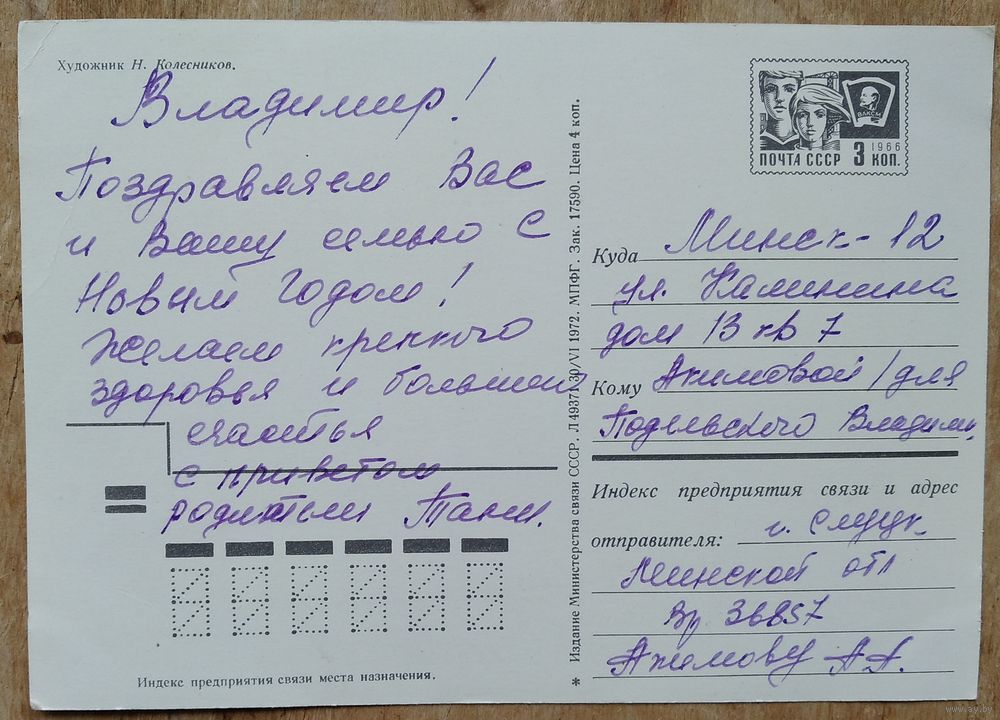 Художник Н. Колесников.
Владимир!
Поздравляем Вас
и Вашу семью с
Новым Годом!
Желаем крепкого
здоровья и большого
счастья
с приветом
родители Тани.
Индекс предприятия связи места назначения.
* Издание Министерства связи СССР. Л 49371 30/VI 1972. МПФГ. Зак. 17590. Цена 4 коп.
ВЛКСМ
1966
ПОЧТА СССР 3 КОП.
Куда Минск-12
ул. Калинина
дом 13 кв 7
Кому Акимовой /для
Подельского Владими.
Индекс предприятия связи и адрес
отправителя: г. Слуцк
Минской обл
36857
Акимову А.А.
www.ay.by